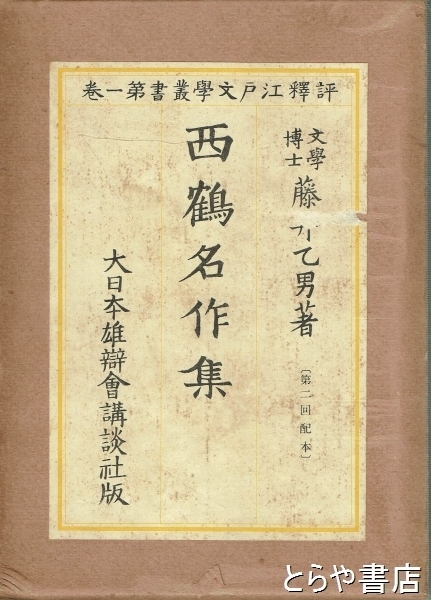 評釋江戸文學叢書第一卷
文學
博士
藤 乙男著
〔第二回配本〕
西鶴名作集
大日本雄辯會講談社版
とらや書店